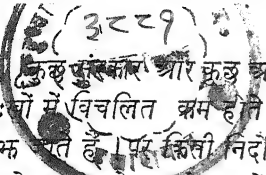 ( ३८८१ )
कुछ पुरस्कार और कुछ
में विचलित कम होते
जाते हैं । पर किसी